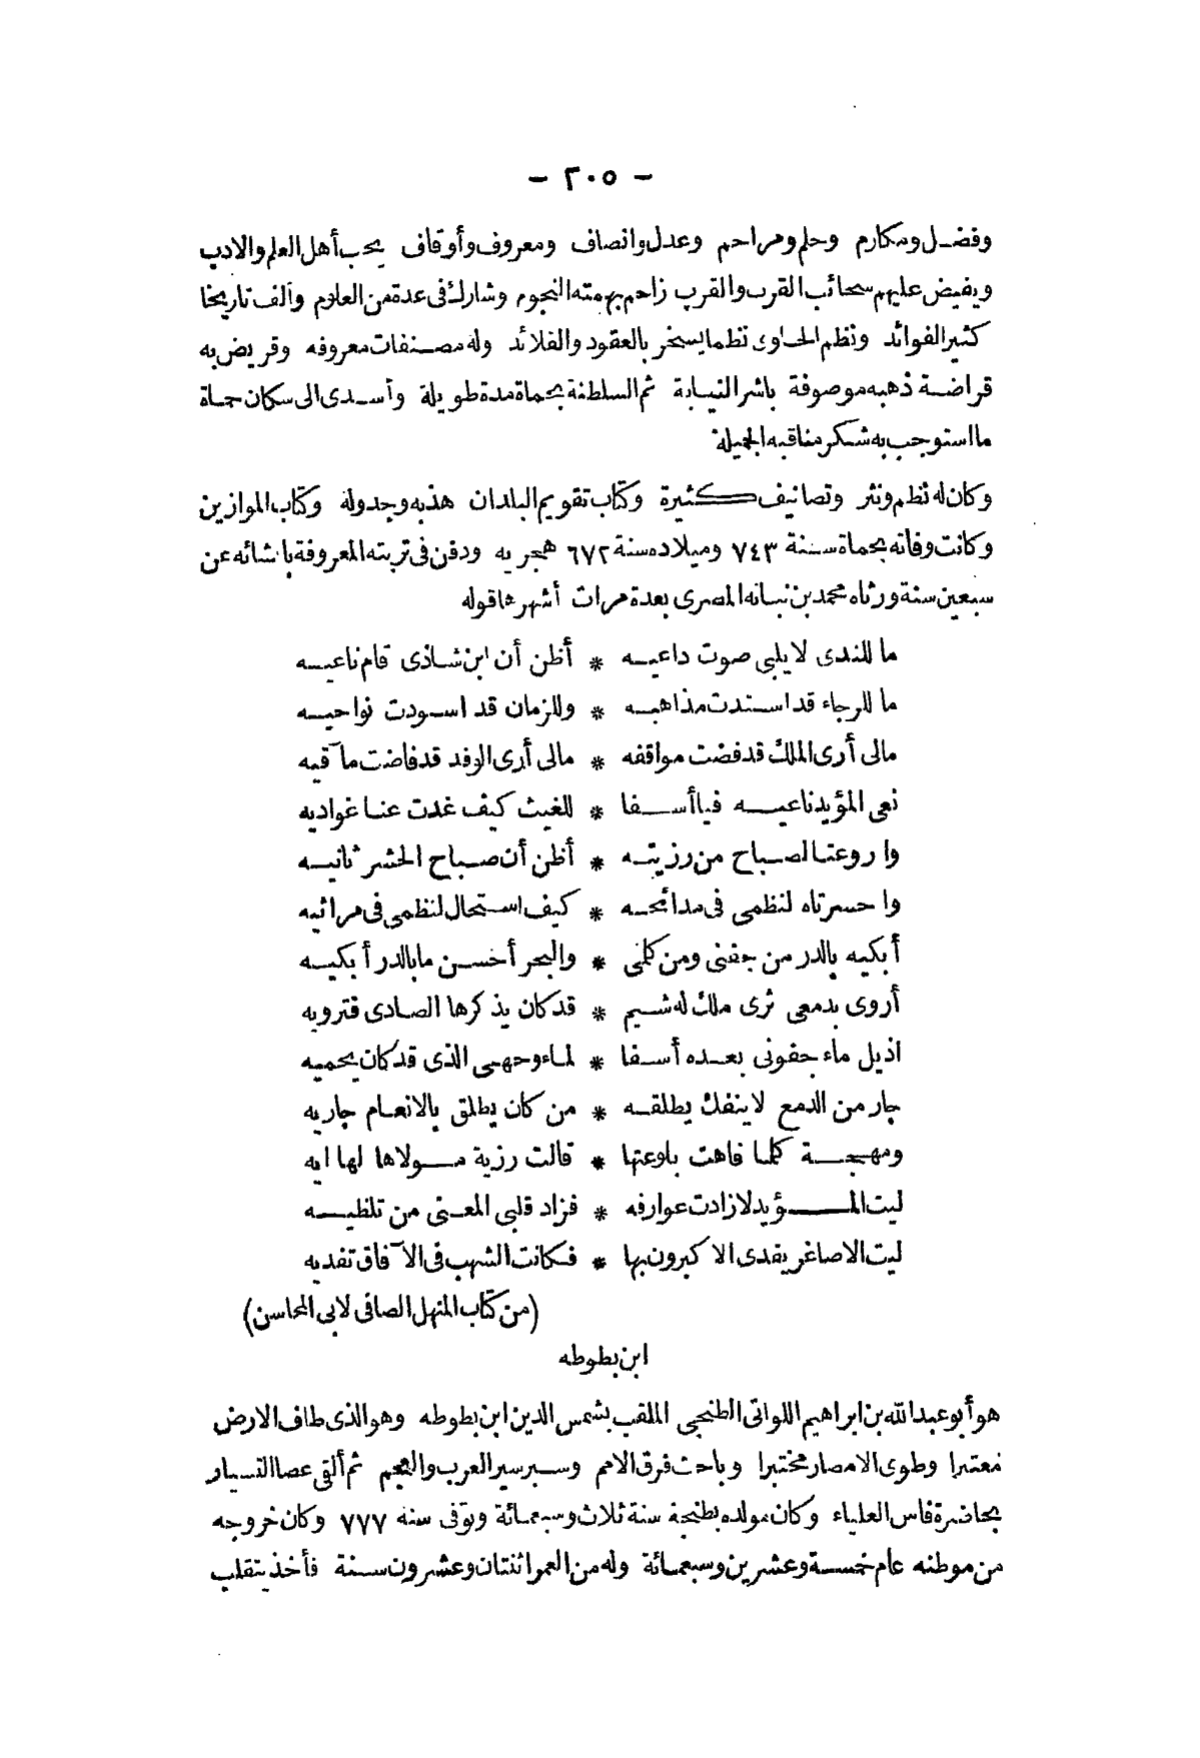 - ٢٠٥ -
وفضل ومكارم وحلم ومراحم وعدل وانصاف ومعروف وأوقاف يحب أهل العلم والادب
ويفيض عليهم سحائب القرب والقرب زاحم بهمته النجوم وشارك فى عدة من العلوم وألف تاريخا
كثير الفوائد ونظم الحاوى نظما يسخر بالعقود والقلائد وله مصنفات معروفه وقريض به
قراضة ذهبه موصوفة باشر النيابة ثم السلطنة بحماة مدة طويلة وأسدى الى سكان حماة
ما استوجب به شكر مناقبه الجميلة
وكان له نظم ونثر وتصانيف كثيرة وكتاب تقويم البلدان هذبه وجدوله وكتاب الموازين
وكانت وفاته بحماة سنة ٧٤٣ وميلاده سنة ٦٧٢ هجريه ودفن فى تربته المعروفة بانشائه عن
سبعين سنة ورثاه محمد بن نباته المصرى بعدة مرات أشهرها قوله
ما للندى لا يلبى صوت داعيه * أظن أن ابن شاذى قام ناعيه
ما للرجاء قد استدت مذاهبه * وللزمان قد اسودت نواحيه
مالى أرى الملك قد فضت مواقفه * مالى أرى الوفد قد فاضت مآقيه
نعى المؤيد ناعيه فيا أسفا * للغيث كيف غدت عنا غواديه
وا روعتا لصباح من رزيته * أظن أن صباح الحشر ثانيه
وا حسرتاه لنظمى فى مدائحه * كيف استحال لنظمى فى مراثيه
أبكيه بالدر من جفنى ومن كلمى * والبحر أحسن ما بالدر أبكيه
أروى بدمعى ثرى ملك له شيم * قد كان يذكرها الصادى فترويه
اذيل ماء جفونى بعده أسفا * لماء وجهى الذى قد كان يحميه
جار من الدمع لا ينفك يطلقه * من كان يطلق بالانعام جاريه
ومهجة كلما فاهت بلوعتها * قالت رزية مولاها لها ايه
ليت المؤيد لا زادت عوارفه * فزاد قلبى المعنى من تلظيه
ليت الاصاغر يفدى الاكبرون بها * فكانت الشهب فى الآفاق تفديه
(من كتاب المنهل الصافى لابى المحاسن)
ابن بطوطه
هو أبو عبد الله بن ابراهيم اللواتى الطنجى الملقب بشمس الدين ابن بطوطه وهو الذى طاف الارض
معتبرا وطوى الامصار مختبرا وباحث فرق الامم وسبر سير العرب والعجم ثم ألقى عصا التسيار
بحاضرة فاس العلياء وكان مولده بطنجة سنة ثلاث وسبعمائة وتوفى سنه ٧٧٧ وكان خروجه
من موطنه عام خمسة وعشرين وسبعمائة وله من العمر اثنتان وعشرون سنة فأخذ يتقلب